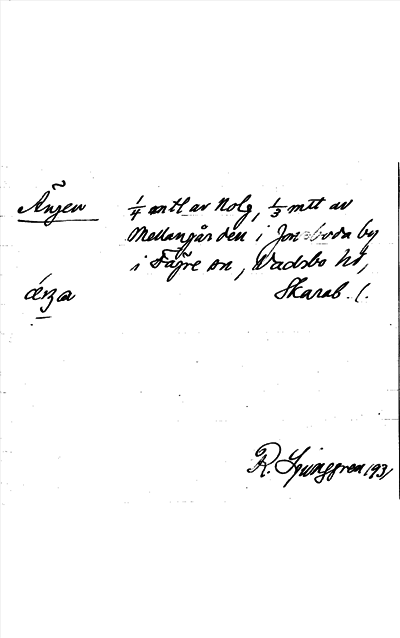 Ängen ¼ mtl av Nolg, ⅓ mtl av
Mellangården i Jonsboda by
i Fägre sn, Vadsbo hd,
Skarab. l.
R. Ljunggren 193